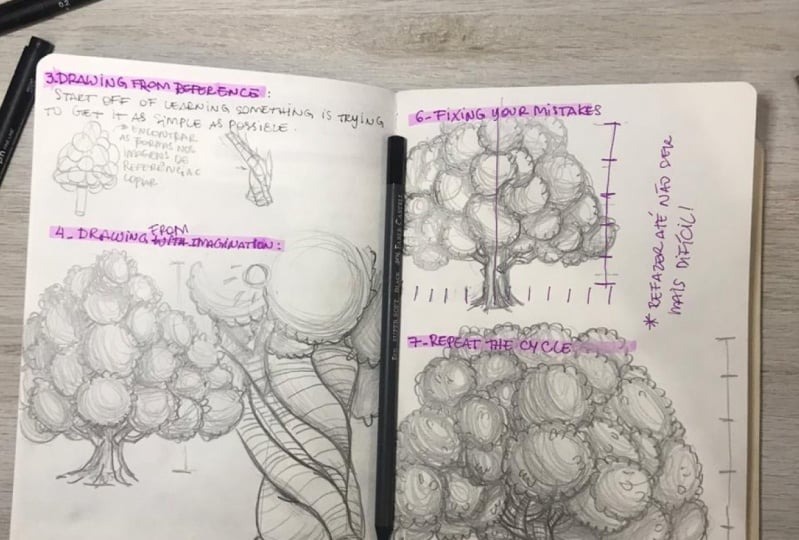 3.DRAWING FROM REFERENCE:
START OFF OF LEARNING SOMETHING IS TRYING
TO GET IT AS SIMPLE AS POSSIBLE.
* ENCONTRAR
AS FORMAS NAS
IMAGENS DE
REFERÊNCIA E
COPIAR
4- DRAWING FROM WITH IMAGINATION:
6-FIXING YOUR MISTAKES
* REFAZER ATÉ NÃO SER
MAIS DIFÍCIL!
7-REPEAT THE CYCLE
FABER CASTELL